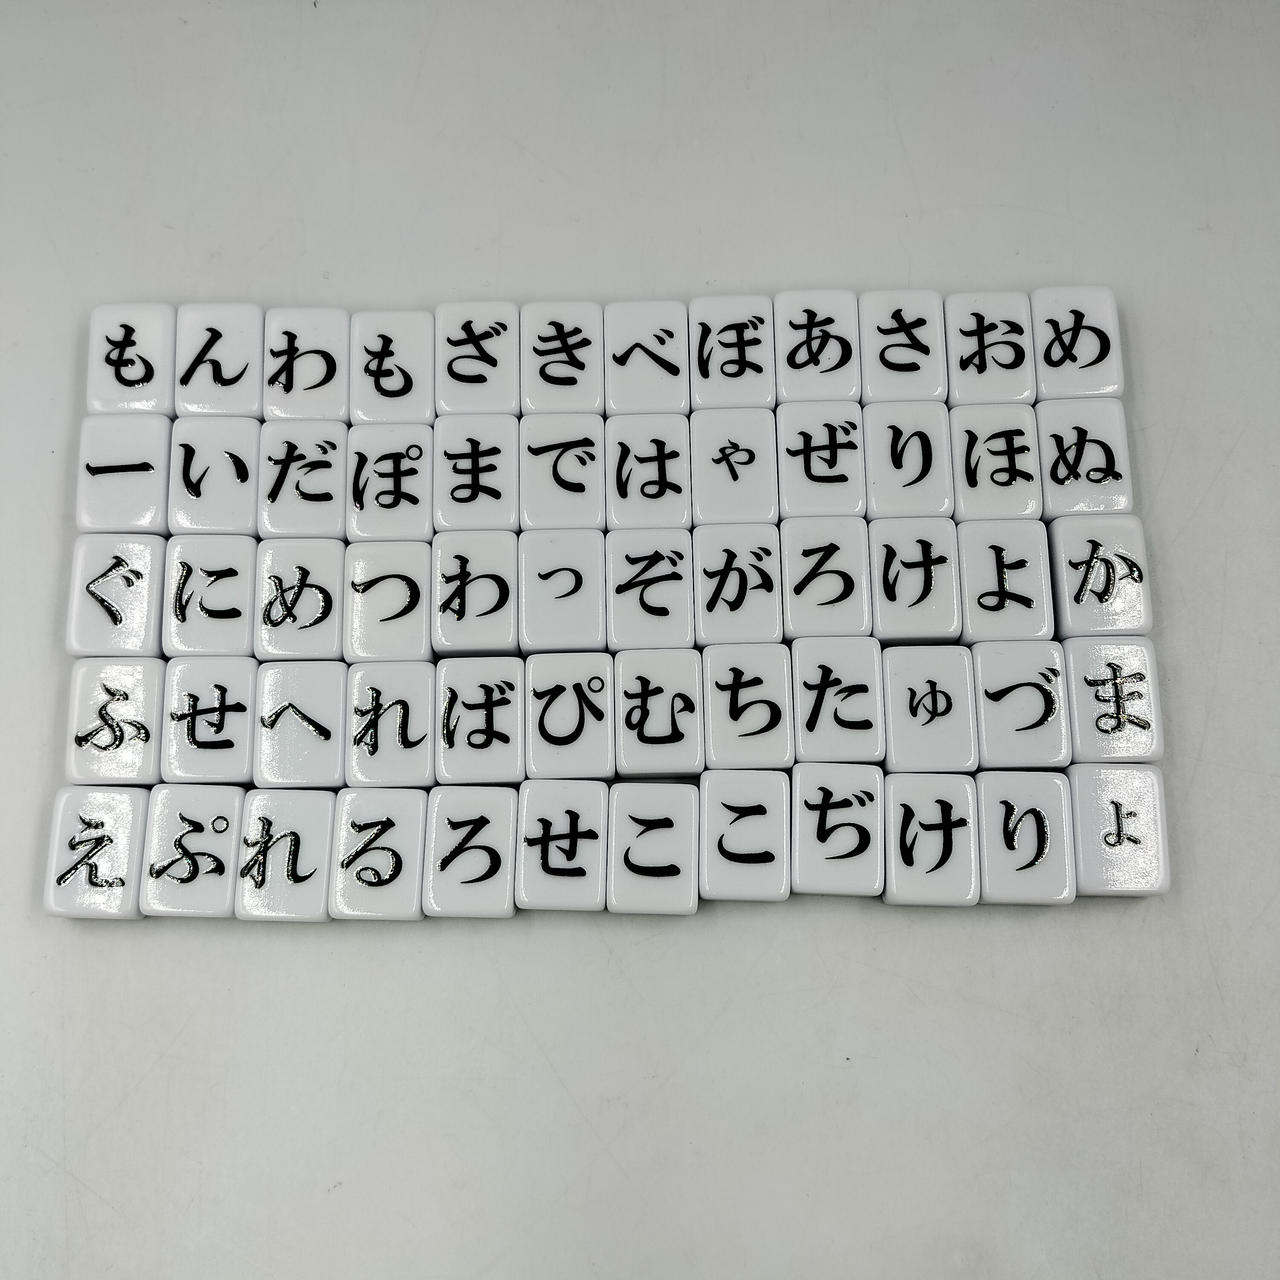 もんわもざきべぼあさおめ
ーいだぽまではゃぜりほぬ
ぐにめつわっぞがろけよか
ふせへればぴむちたゅづま
えぷれるろせここぢけりょ